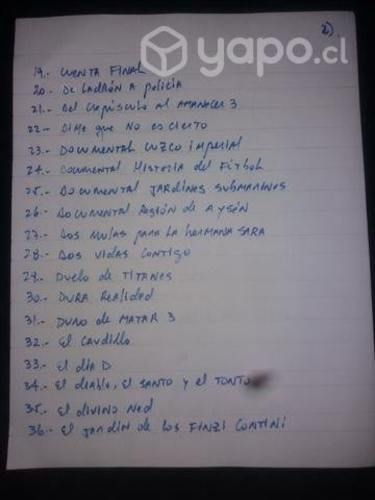 yapo.cl
2).
19.- CUENTA FINAL
20.- De LADRÓN A policía
21.- Del Crepúsculo al AMANECER 3
22.- Dime que NO es cierto
23.- Documental Cuzco imperial
24.- Documental Historia del Fútbol
25.- Documental JARDINES SUBMARINOS
26.- Documental Región de Aysén
27.- Dos Mulas para la hermana SARA
28.- Dos VIDAS CONTIGO
29.- Duelo de TITANES
30.- DURA Realidad
31.- DURO de MATAR 3
32.- El Caudillo
33.- El día D
34.- El diablo, el SANTO y el TONTO
35.- El divino Ned
36.- El JARDÍN de los FINZI CONTINI